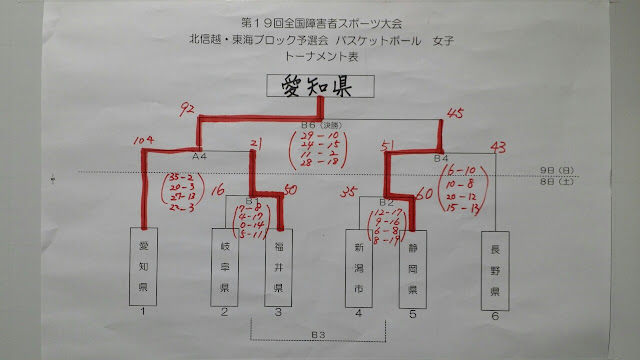 第19回全国障害者スポーツ大会
北信越・東海ブロック予選会 バスケットボール 女子
トーナメント表
愛知県
92
45
B6(決勝)
29-10
24-15
11-2
28-18
104
21
51
43
A4
B4
35-2
20-3
27-13
22-3
6-10
10-8
20-12
15-13
9日(日)
8日(土)
16
50
35
60
B1
B2
7-8
4-17
0-14
5-11
12-17
9-16
6-8
8-19
愛知県
岐阜県
福井県
新潟市
静岡県
長野県
1
2
3
4
5
6
B3